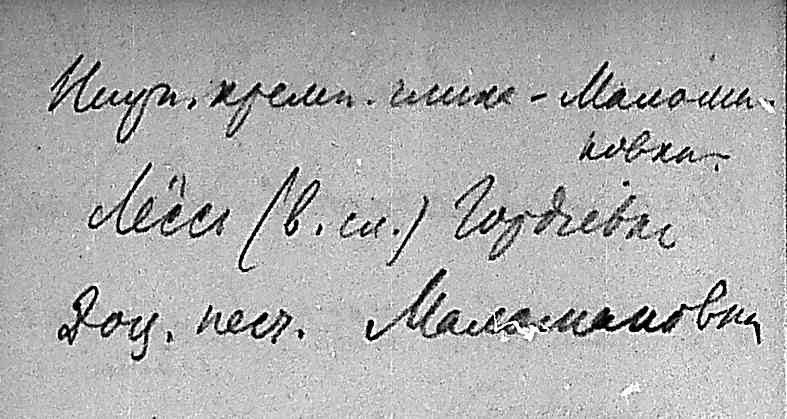 кремн. глина - Маломи-
новка.
Лёсс (в. сл.) Гордіевка
Доц. песч. Маломановка